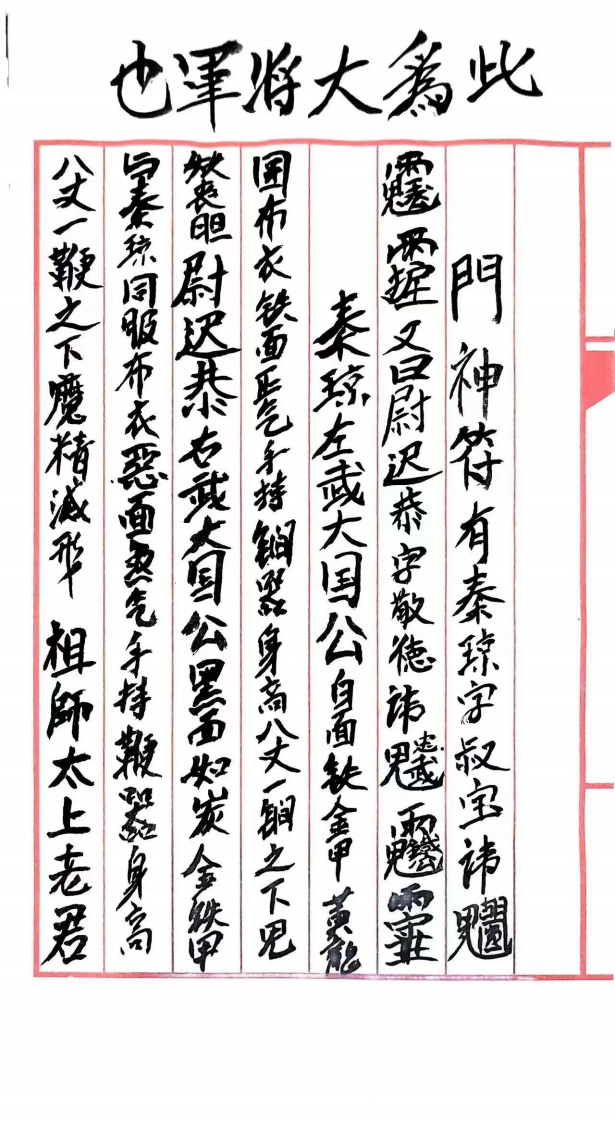 此為大將軍也
門神符有秦琼字叔宝讳
又曰尉迟恭字敬德讳
秦琼左武大国公白面铁金甲黄龍
困布衣铁面正气手持锏器身高八丈一锏之下鬼
丧胆尉迟恭右武大国公黑面如炭金铁甲
与秦琼同服布衣惡面煞气手持鞭器身高
八丈一鞭之下魔精滅形 祖師太上老君